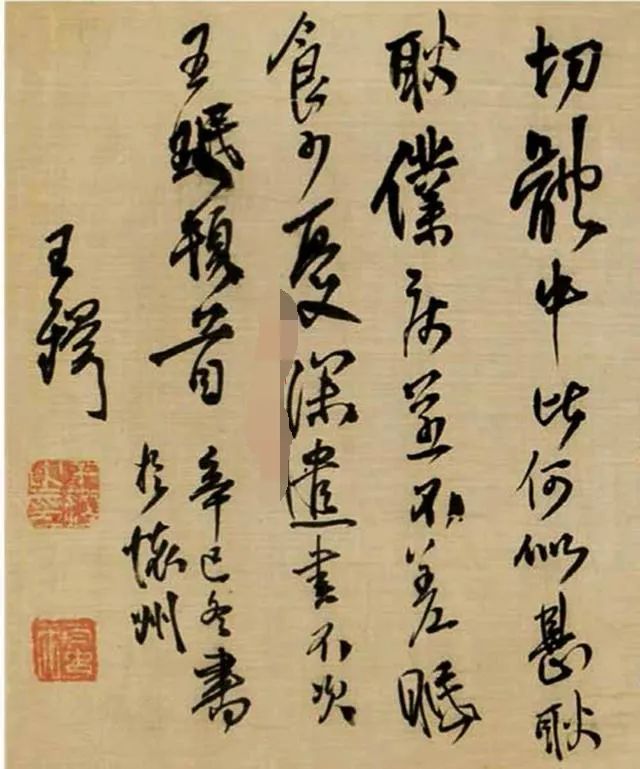 切體中比何似甚耿
耿僕疾並不差眠
食少憂深遣書不次
王珉頓首
辛巳冬書
於懷州
王鐸